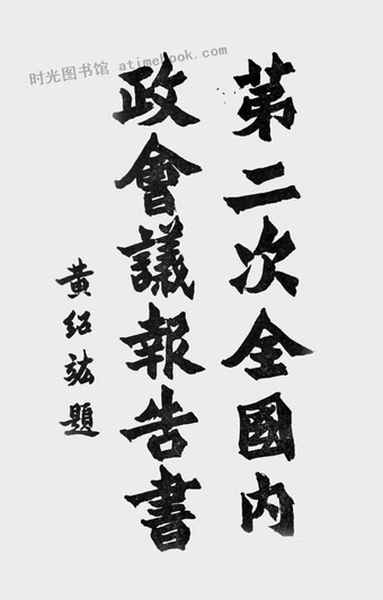 第二次全國内
政會議報告書
黄紹竑題
时光图书馆 atimebook.com